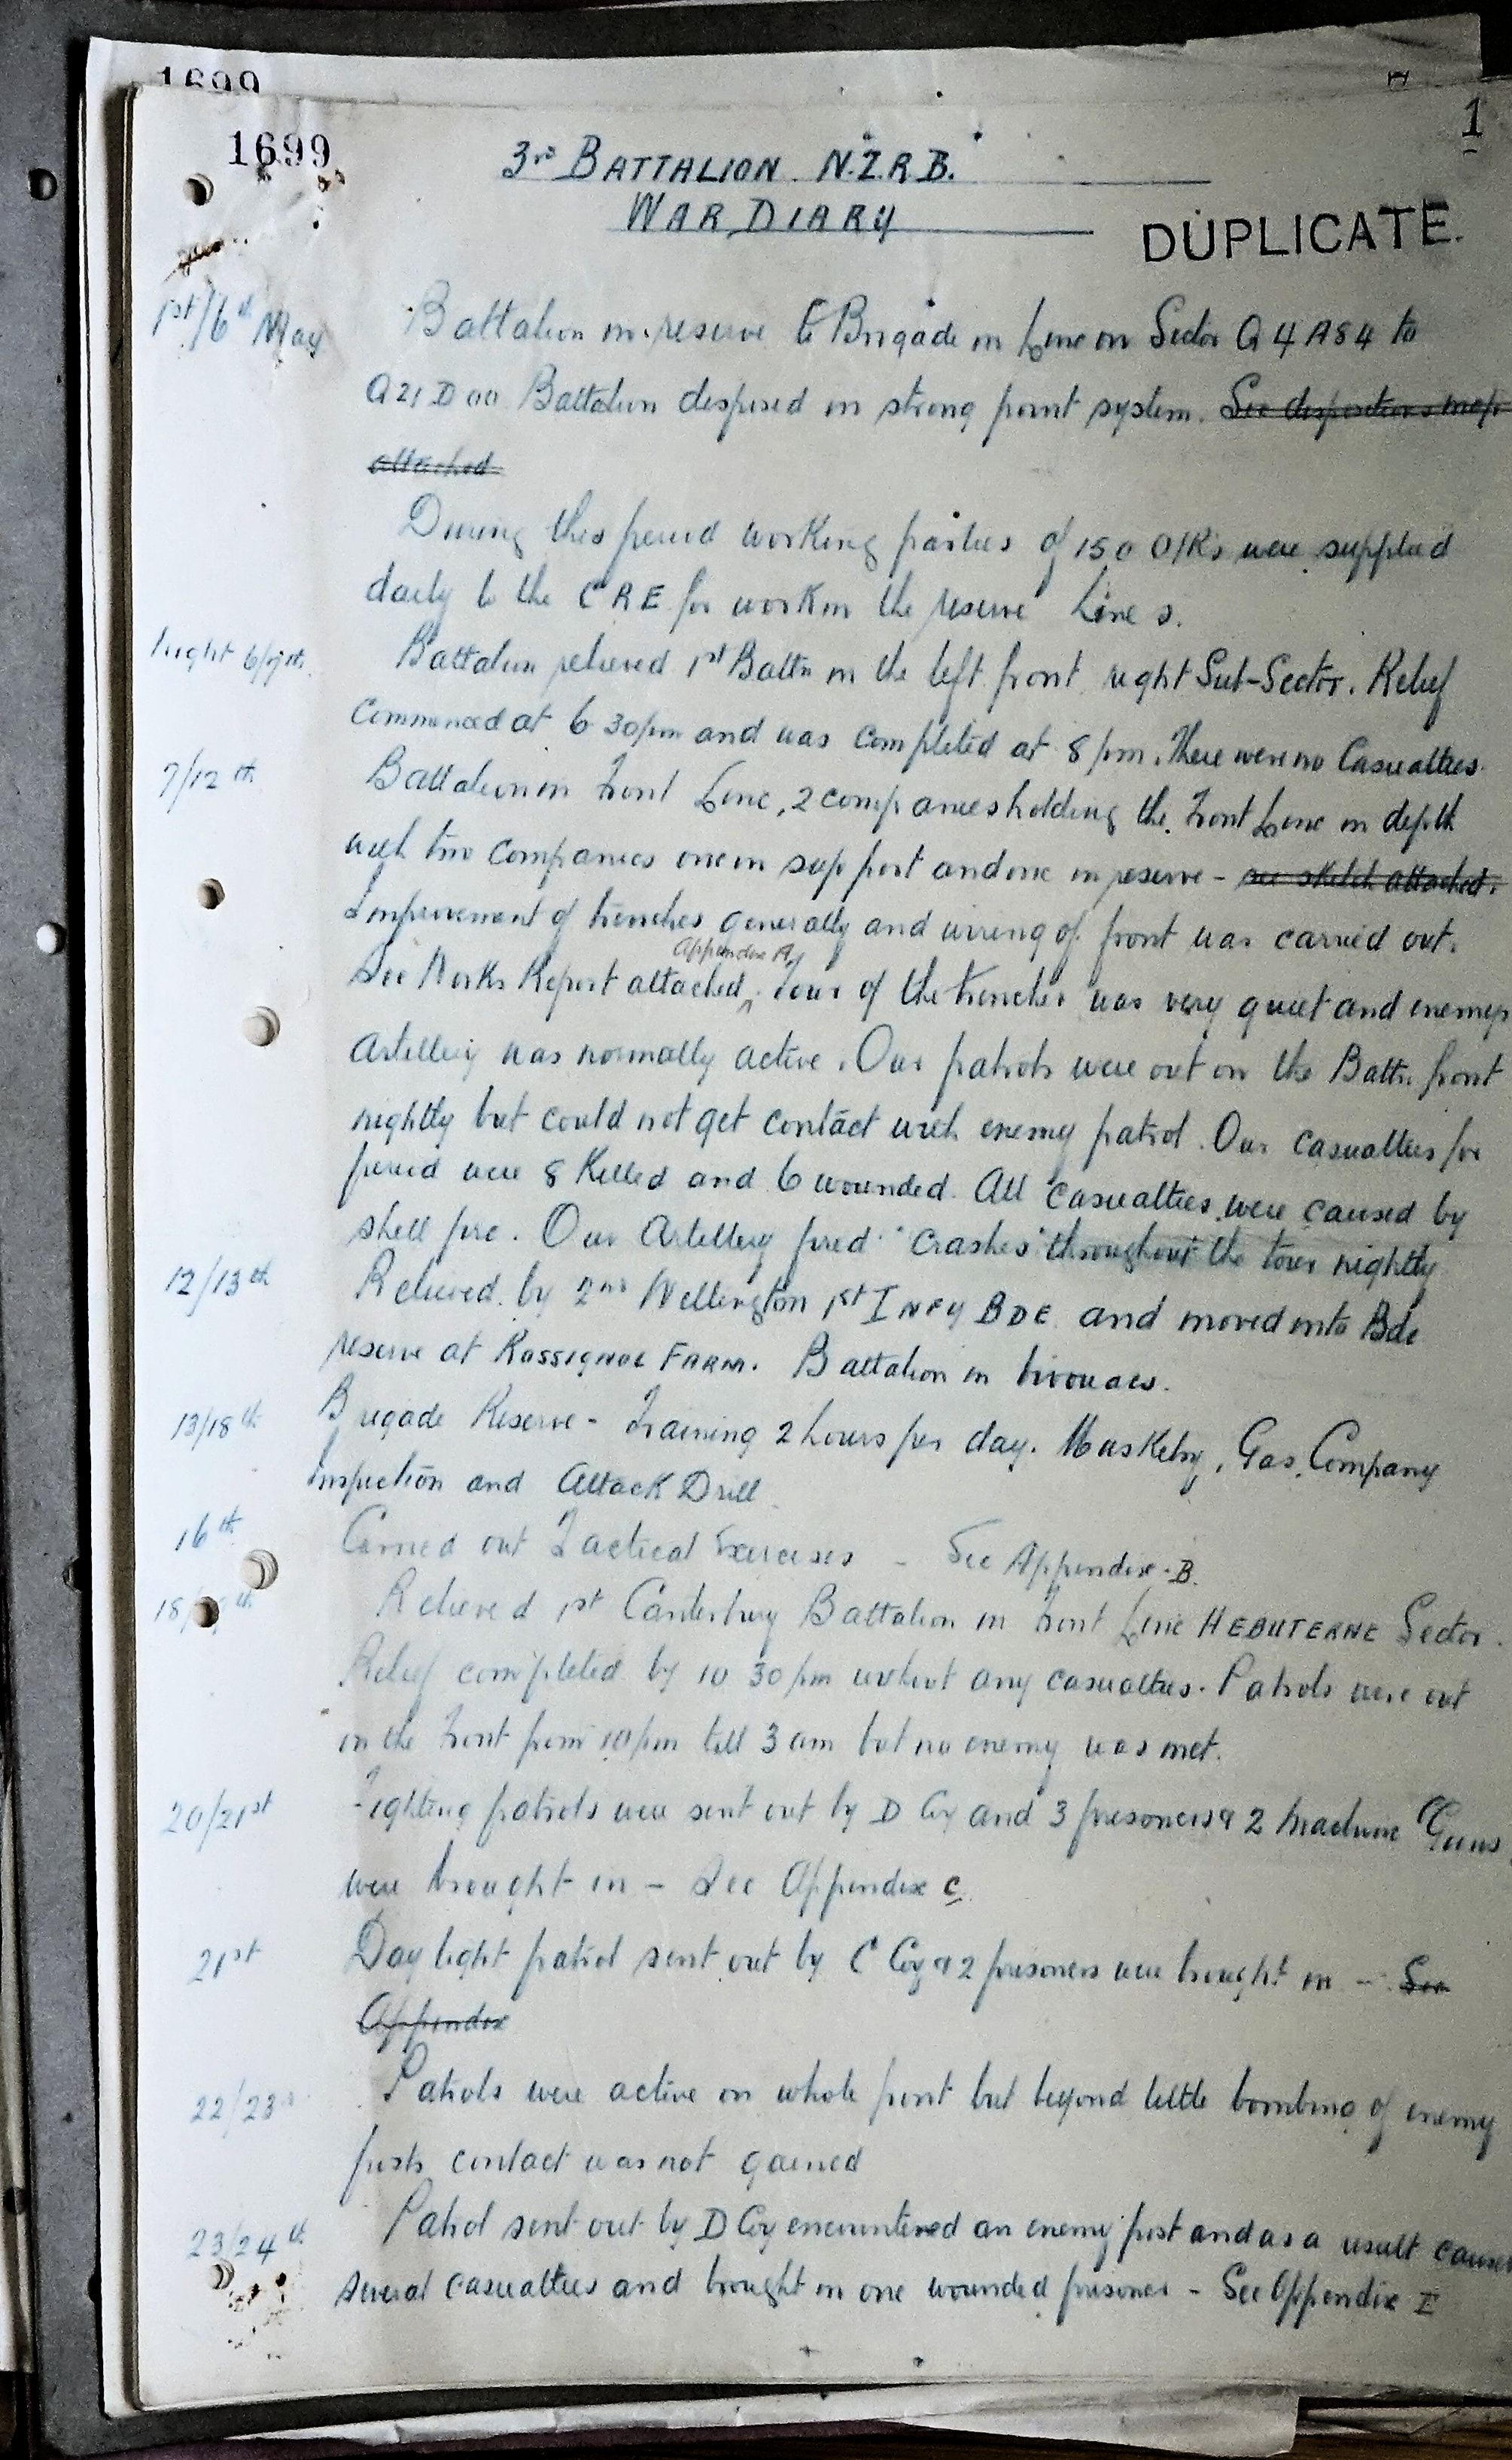 1699
1699
1
3rd BATTALION N.Z.R.B.
WAR DIARY
DUPLICATE.
1st/6th May Battalion in reserve to Brigade in Line on Sector Q 4 A 8 4 to
Q 21 D 00 Battalion disposed in strong point system. See dispositions map
attached
During this period working parties of 150 O/Rs were supplied
daily to the CRE for work on the reserve Lines.
Night 6/7th. Battalion relieved 1st Battn in the left front right Sub-Sector. Relief
Commenced at 6 30 pm and was completed at 8 pm. There were no Casualties.
7/12th Battalion in Front Line, 2 companies holding the Front Line in depth
with two Companies one in support and one in reserve - see sketch attached.
Improvement of trenches generally and wiring of front was carried out.
Appendix A
See Works Report attached. Tour of the trenches was very quiet and enemy
Artillery was normally active. Our patrols were out on the Battn. front
nightly but could not get contact with enemy patrol. Our casualties for
period were 8 Killed and 6 wounded. All casualties were caused by
shell fire. Our Artillery fired "Crashes" throughout the tour nightly
12/13th Relieved by 2nd Wellington 1st INFY BDE and moved into Bde
reserve at ROSSIGNOL FARM. Battalion in bivouacs.
13/18th Brigade Reserve - Training 2 hours per day. Musketry, Gas, Company
Inspection and Attack Drill
16th Carried out Tactical Exercises - See Appendix B.
18/ th Relieved 1st Canterbury Battalion in Front Line HEBUTERNE Sector.
Relief completed by 10 30 pm without any casualties. Patrols were out
on the Front from 10 pm till 3 am but no enemy was met.
20/21st Fighting patrols were sent out by D Coy and 3 prisoners & 2 Machine Guns
were brought in - See Appendix C
21st Daylight patrol sent out by C Coy & 2 prisoners were brought in - See
Appendix
22/23 Patrols were active on whole front but beyond little bombing of enemy
posts contact was not gained
23/24th Patrol sent out by D Coy encountered an enemy post and as a result caused
several casualties and brought in one wounded prisoner - See Appendix